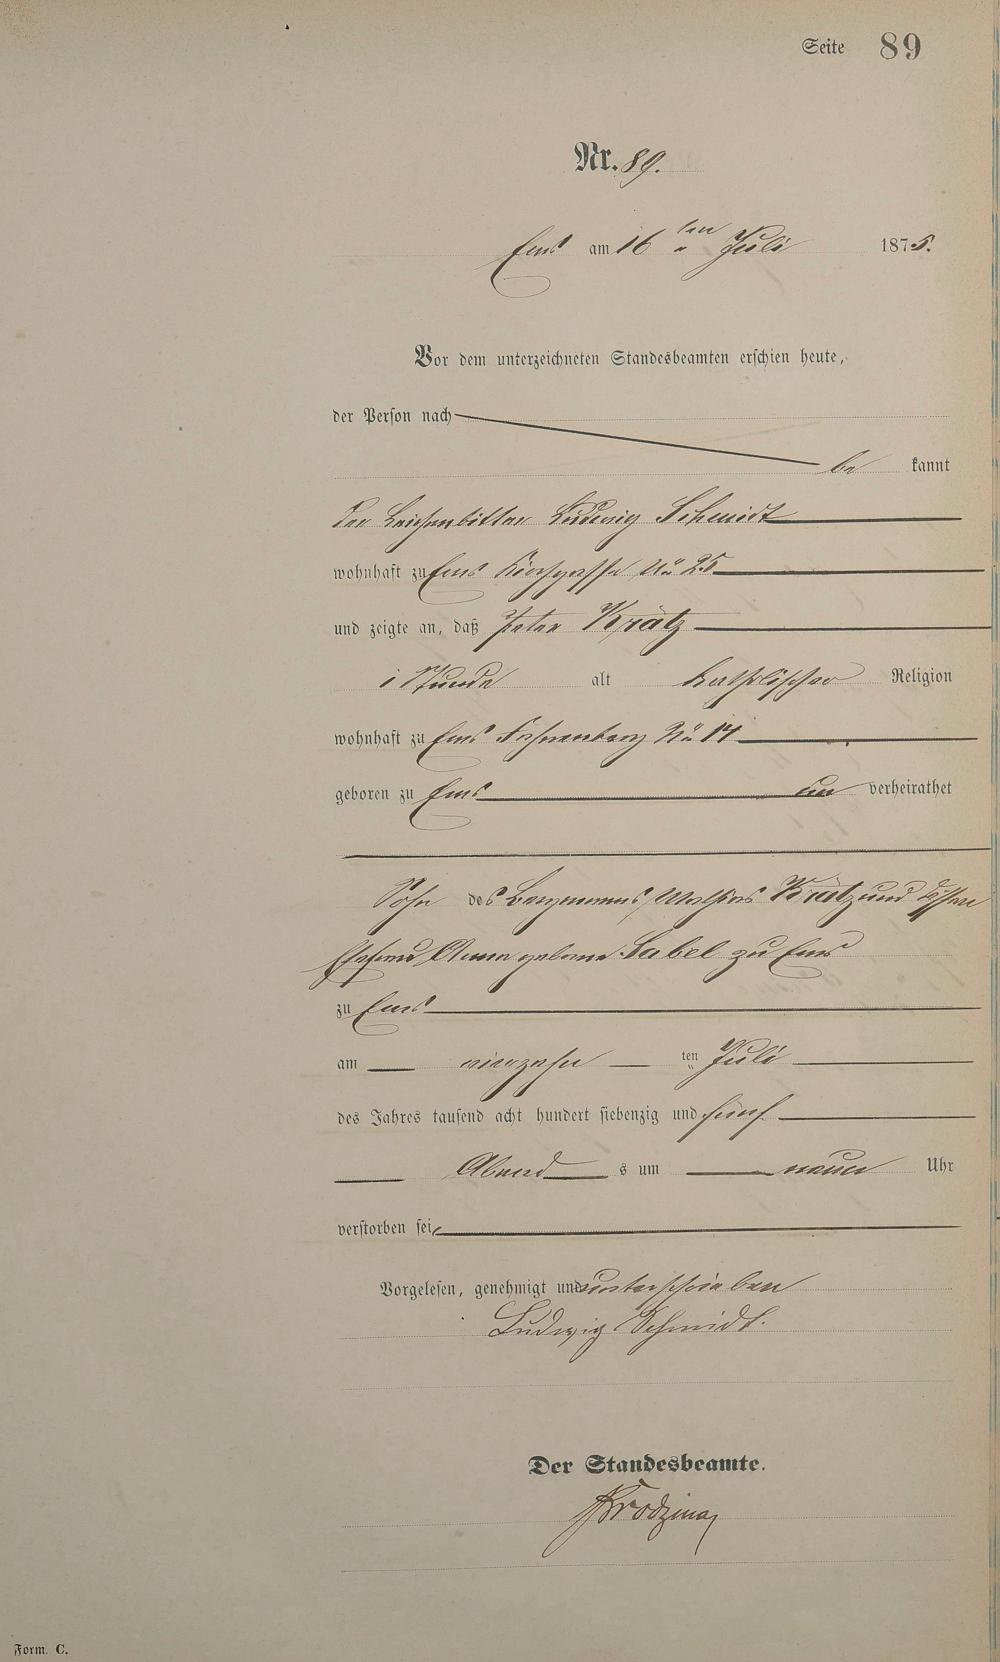 Seite 89
Nr. 89.
Ems am 16 ten Juli 1875.
Vor dem unterzeichneten Standesbeamten erschien heute,
der Person nach
be kannt
der Leichenbitter Ludwig Schmidt
wohnhaft zu Ems Kirchgasse No 25
und zeigte an, daß Peter Krätz
1 Stunde alt katholischer Religion
wohnhaft zu Ems No 14
geboren zu Ems un verheirathet
Sohn des Bergmanns Mathias Krätz und dessen
Ehefrau Anna geborne Sabel zu Ems
zu Ems
am vierzehn ten Juli
des Jahres tausend acht hundert siebenzig und fünf
Abend s um neun Uhr
verstorben sei,
Vorgelesen, genehmigt und unterschrieben
Ludwig Schmidt.
Der Standesbeamte.
Form. C.